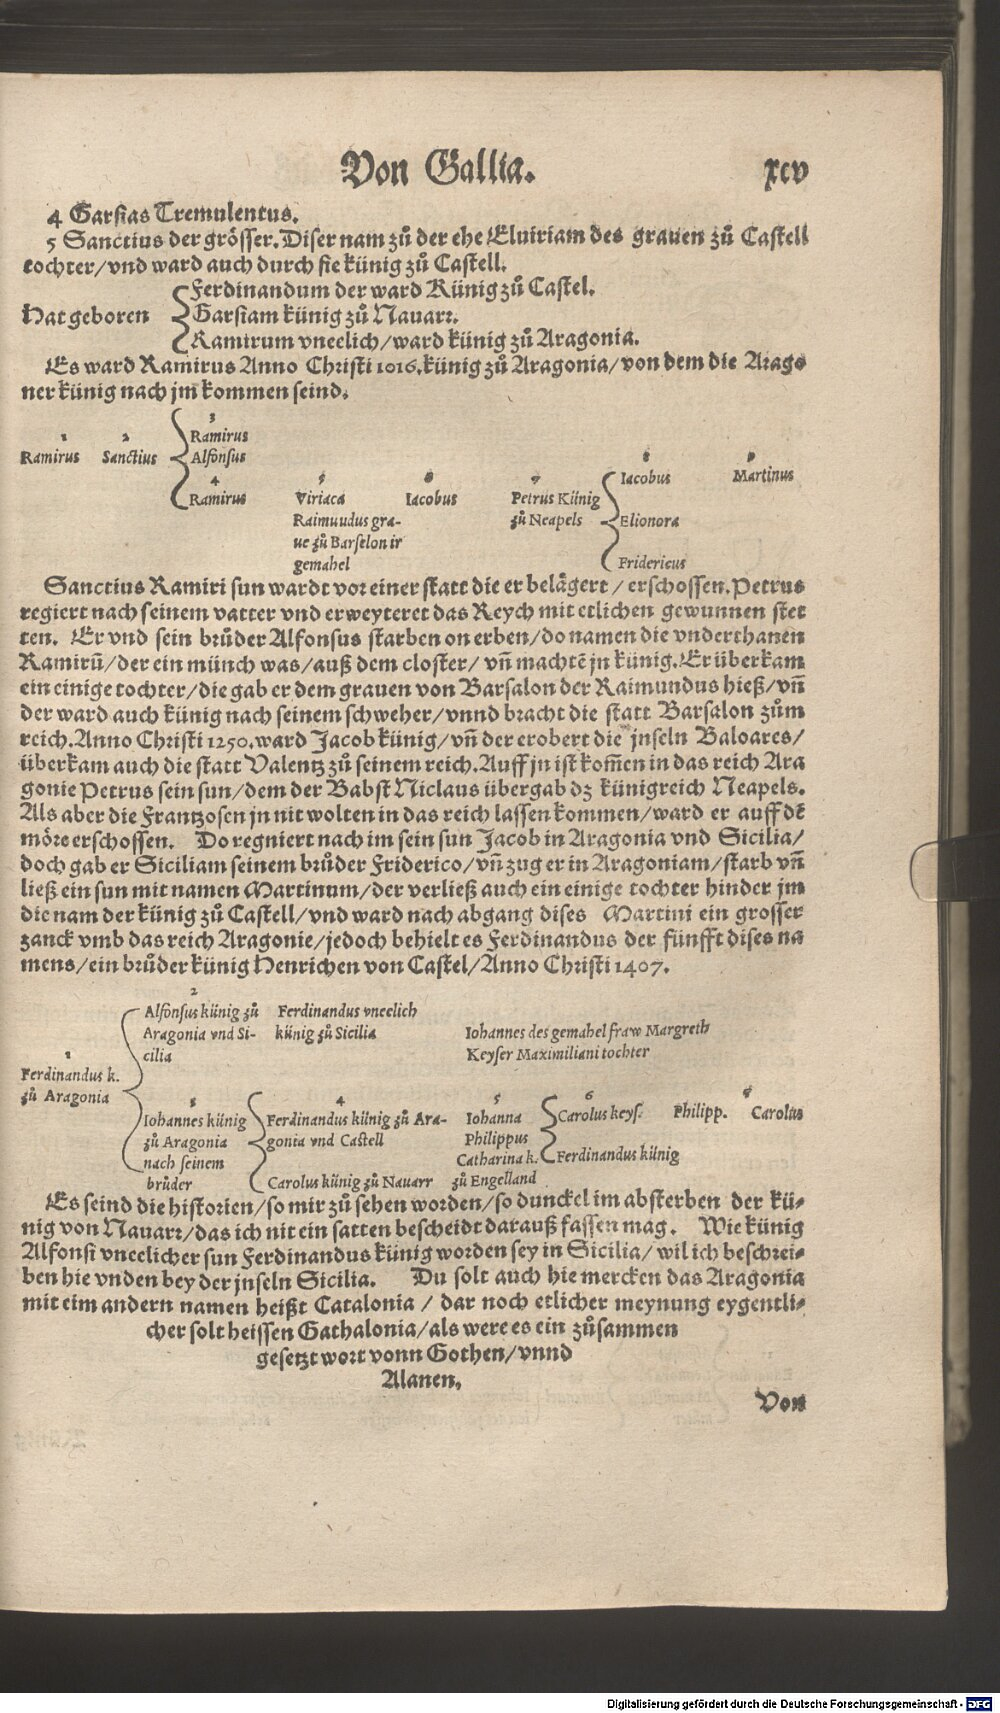 Von Gallia. xcv
4 Garsias Tremulentus.
5 Sanctius der grösser. Diser nam zů der ehe Eluiriam des grauen zů Castell
tochter/vnd ward auch durch sie künig zů Castell.
Ferdinandum der ward Künig zů Castel.
Hat geboren Garsiam künig zů Nauarr.
Ramirum vneelich/ward künig zů Aragonia.
Es ward Ramirus Anno Christi 1016. künig zů Aragonia/von dem die Arago
ner künig nach jm kommen seind.
3
Ramirus
1 2
Ramirus Sanctius Alfonsus
8 9
Iacobus Martinus
4 5 6 7
Ramirus Viriaca Iacobus Petrus Künig
Raimundus gra- zů Neapels Elionora
ue zů Barselon ir
gemahel Fridericus
Sanctius Ramiri sun wardt vor einer statt die er belägert / erschossen. Petrus
regiert nach seinem vatter vnd erweyteret das Reych mit etlichen gewunnen stet
ten. Er vnd sein brůder Alfonsus starben on erben/do namen die vnderthanen
Ramirū/der ein münch was/auß dem closter/ vñ machtē jn künig. Er überkam
ein einige tochter/die gab er dem grauen von Barsalon der Raimundus hieß/vñ
der ward auch künig nach seinem schweher/vnnd bracht die statt Barsalon zům
reich. Anno Christi 1250. ward Jacob künig/vñ der erobert die jnseln Baloares/
überkam auch die statt Valentz zů seinem reich. Auff jn ist kom̄en in das reich Ara
gonie Petrus sein sun/dem der Babst Niclaus übergab dz künigreich Neapels.
Als aber die Frantzosen jn nit wolten in das reich lassen kommen/ward er auff dē
möre erschossen. Do regniert nach im sein sun Jacob in Aragonia vnd Sicilia/
doch gab er Siciliam seinem brůder Friderico/vñ zug er in Aragoniam/starb vñ
ließ ein sun mit namen Martinum/der verließ auch ein einige tochter hinder jm
die nam der künig zů Castell/vnd ward nach abgang dises Martini ein grosser
zanck vmb das reich Aragonie/jedoch behielt es Ferdinandus der fünfft dises na
mens/ein brůder künig Henrichen von Castel/Anno Christi 1407.
2
Alfonsus künig zů Ferdinandus vneelich
Aragonia vnd Si- künig zů Sicilia Iohannes des gemahel fraw Margreth
cilia Keyser Maximiliani tochter
1
Ferdinandus k.
zů Aragonia
3 4 5 6 6
Iohannes künig Ferdinandus künig zů Ara- Iohanna Carolus keys. Philipp. Carolus
zů Aragonia gonia vnd Castell Philippus
nach seinem Catharina k. Ferdinandus künig
brůder Carolus künig zů Nauarr zů Engelland
Es seind die historien/so mir zů sehen worden/so dunckel im absterben der kü-
nig von Nauarr/das ich nit ein satten bescheidt darauß fassen mag. Wie künig
Alfonsi vneelicher sun Ferdinandus künig worden sey in Sicilia/ wil ich beschrei-
ben hie vnden bey der jnseln Sicilia. Du solt auch hie mercken das Aragonia
mit eim andern namen heißt Catalonia / dar noch etlicher meynung eygentli-
cher solt heissen Gathalonia/als were es ein zůsammen
gesetzt wort vonn Gothen/vnnd
Alanen.
Von
Digitalisierung gefördert durch die Deutsche Forschungsgemeinschaft - DFG